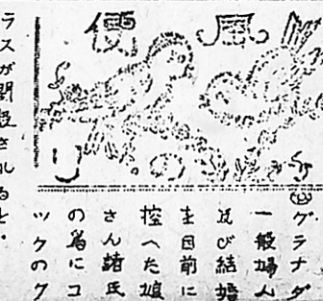 風の便り
◎グラナダ
一般婦人
及び結婚
を目前に
控へた娘
さん諸氏
の為にコ
ックのク
ラスが開設されると・